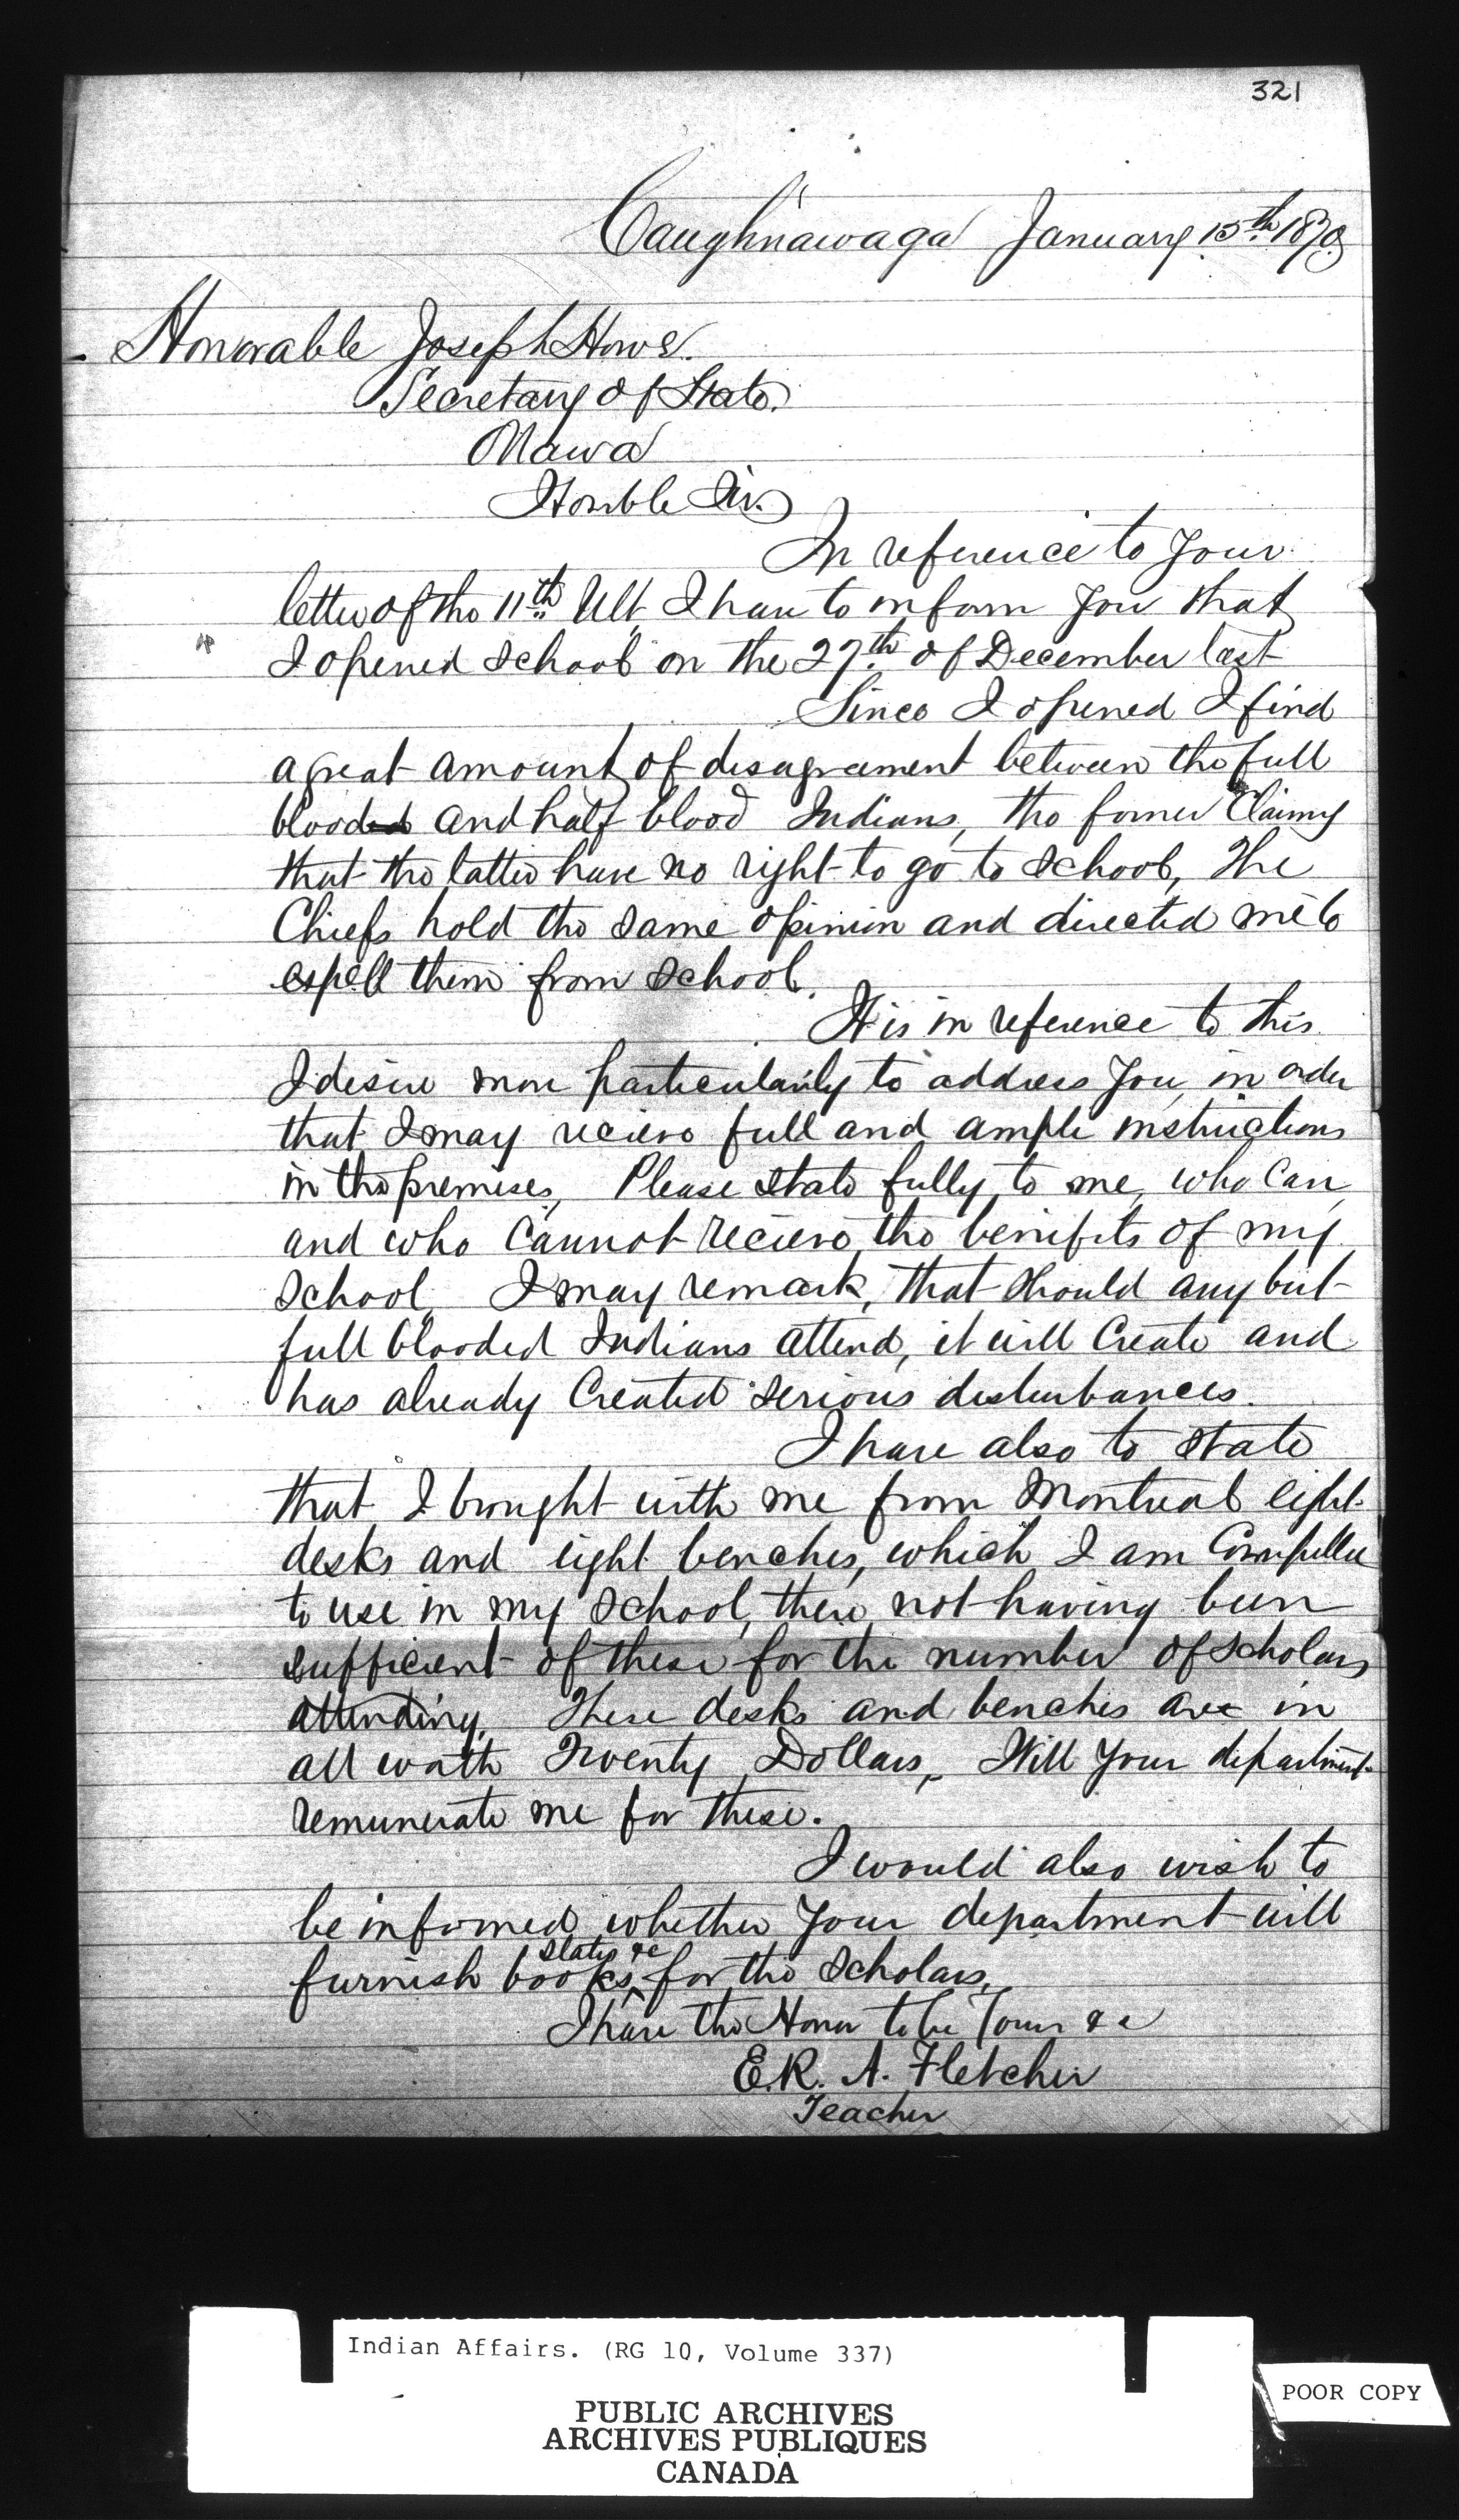 321
Caughnawaga January 15th 1870
Honorable Joseph Howe.
Secretary of State.
Ottawa
Honble Sir.
In reference to your
letter of the 11th Ult, I have to inform you that
I opened school on the 27th of December last
Since I opened I find
a great amount of disagreement between the full
blood and half blood Indians, the former Claimg
that the latter have no right to go to school, The
Chiefs hold the same opinion and directed me to
espell them from school.
It is in reference to this
I desire more particularily to address you, in order
that I may recieve full and ample instructions
in the premises, Please state fully to me, who can,
and who cannot recieve the benifits of my
school. I may remark, that should any but
full blooded Indians attend, it will Create and
has already Created serious disturbances.
I have also to state
that I brought with me from Montreal eight
desks and eight benches, which I am Compelled
to use in my school, there not having been
sufficient of these for the number of scholars
attending. These desks and benches are in
all worth Twenty Dollars,- Will your department
remunerate me for these.
I would also wish to
be informed whether your department will
furnish books, slates &c for the scholars.
I have the Honor to be Yours &c
E.R. A. Fletcher
Teacher
Indian Affairs. (RG 10, Volume 337)
PUBLIC ARCHIVES
ARCHIVES PUBLIQUES
CANADA
POOR COPY